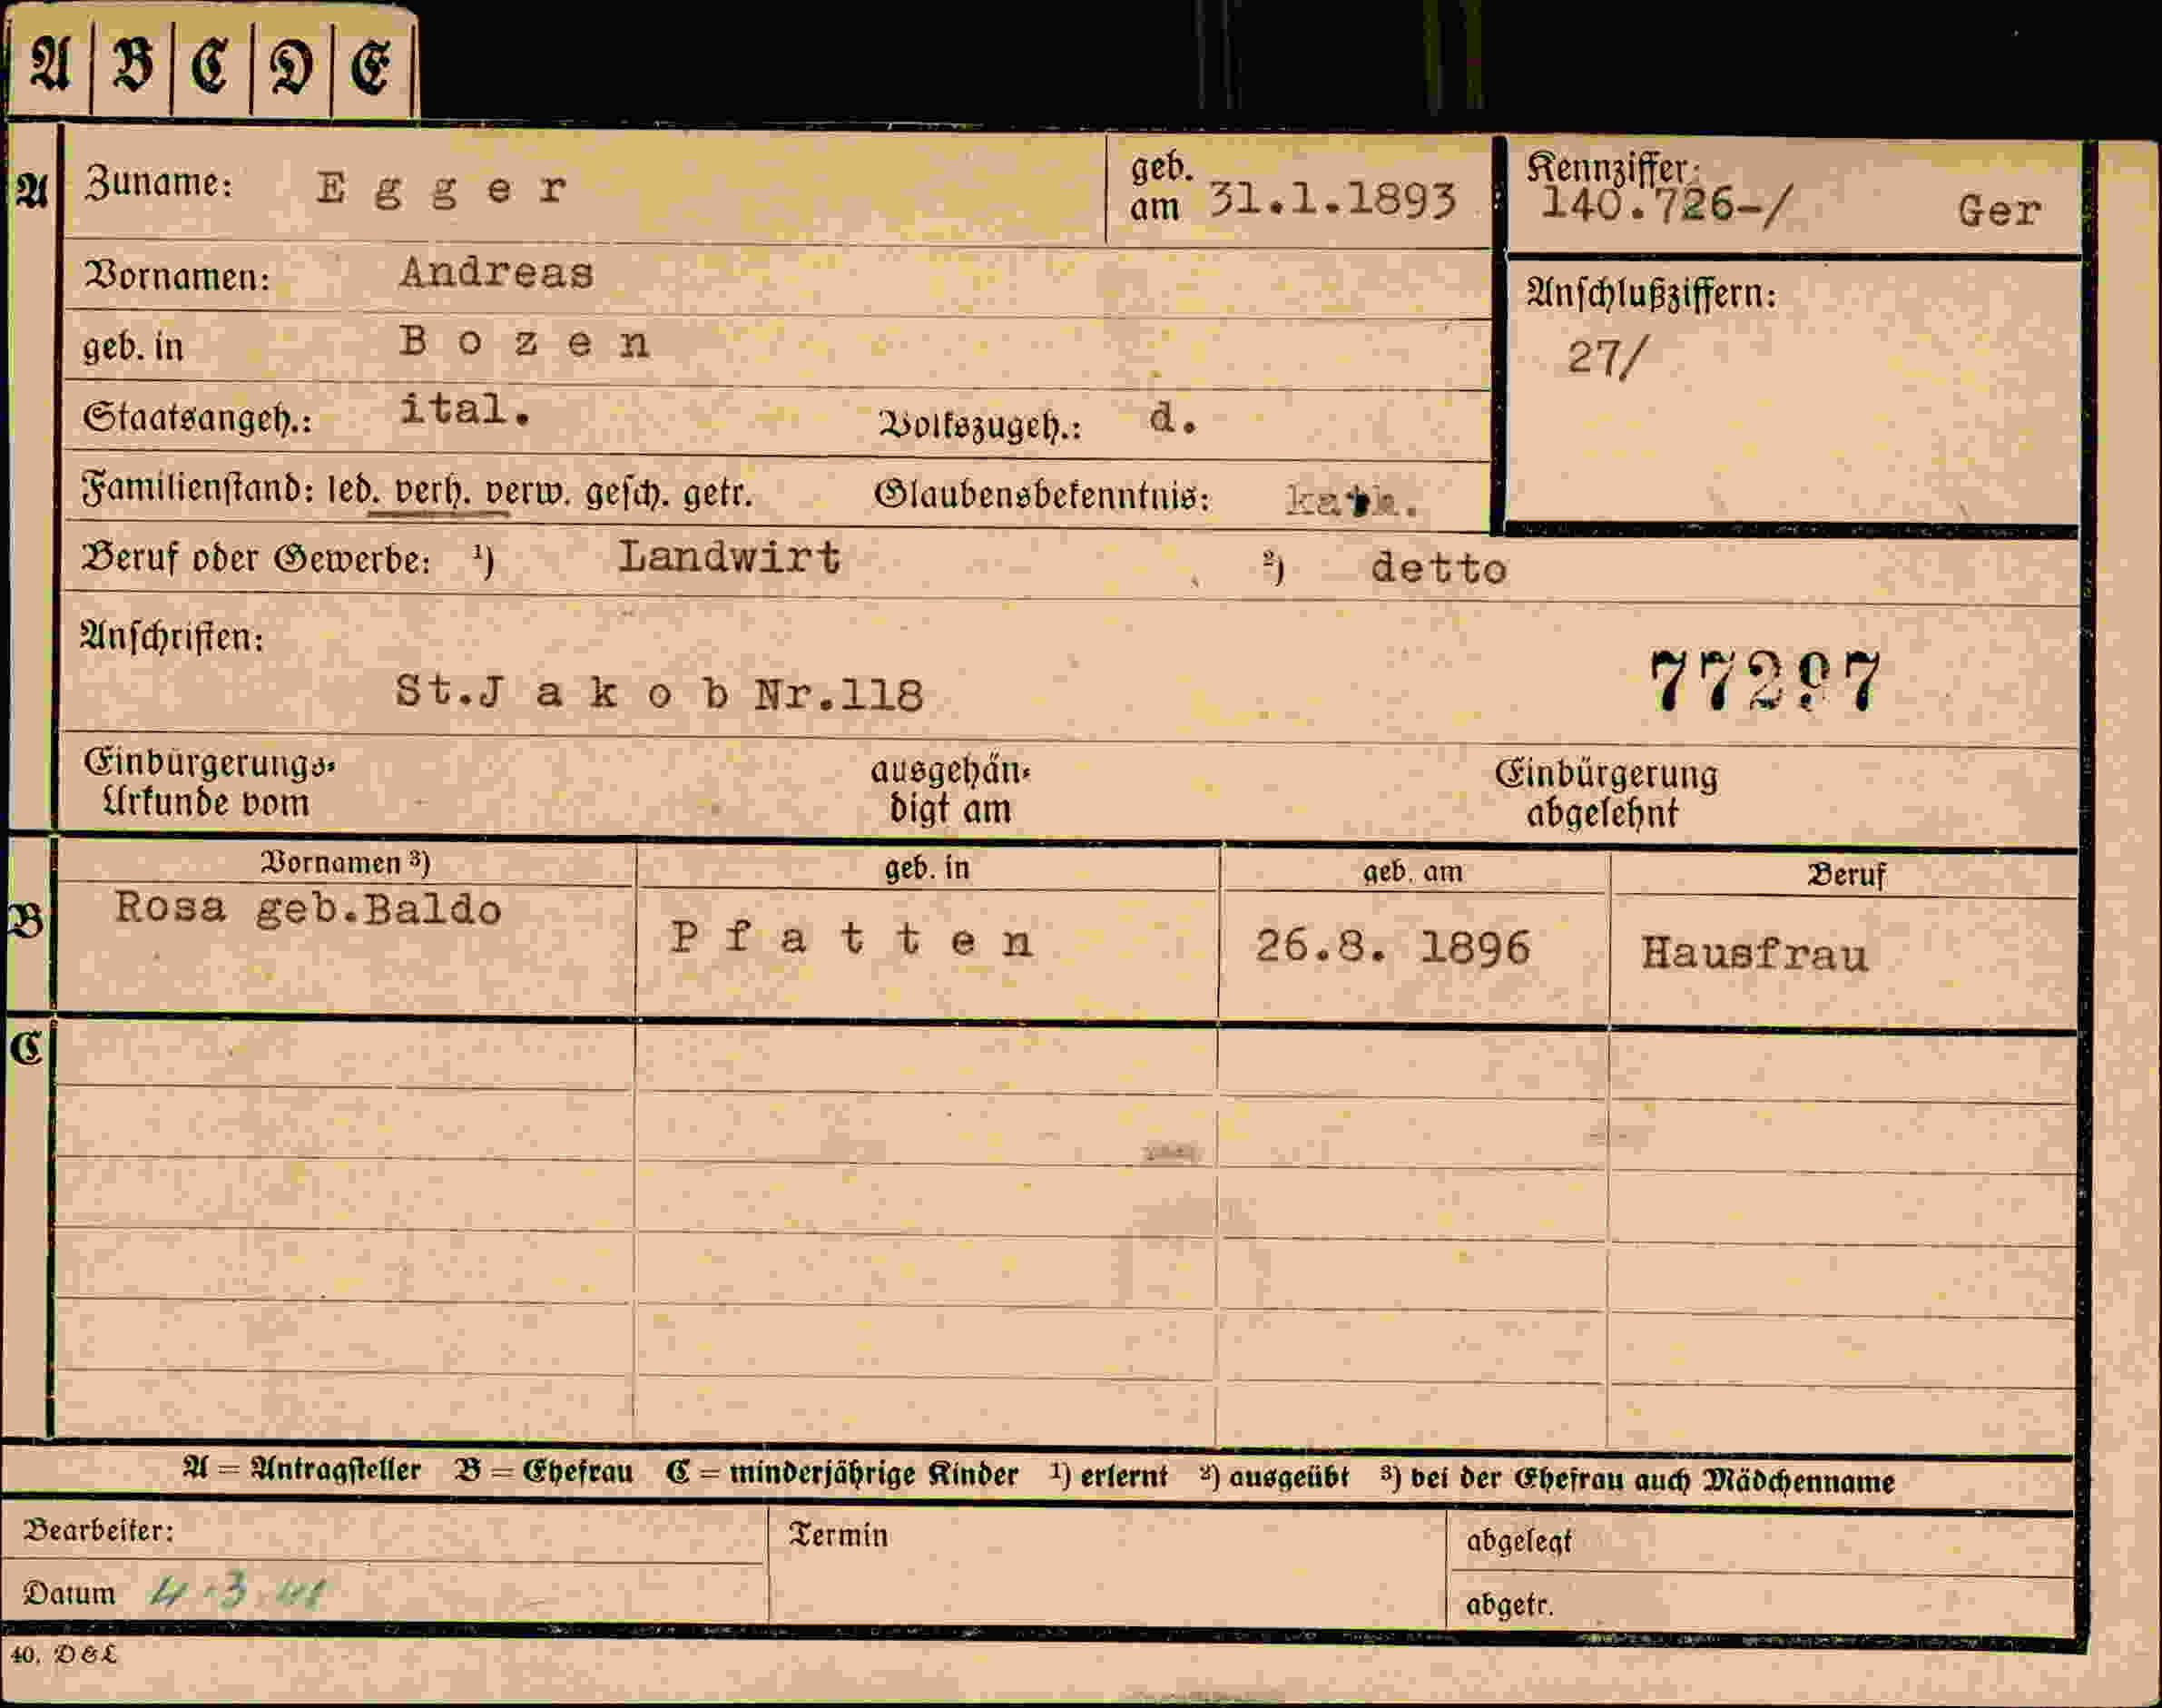 A B C D E
A Zuname: Egger geb. am 31.1.1893 Kennziffer: 140.726-/ Ger
Vornamen: Andreas Anschlußziffern:
geb. in Bozen 27/
Staatsangeh.: ital. Volkszugeh.: d.
Familienstand: led. verh. verw. gesch. getr. Glaubensbekenntnis: kath.
Beruf oder Gewerbe: ¹) Landwirt ²) detto
Anschriften:
St.Jakob Nr.118 77297
Einbürgerungs-Urkunde vom ausgehändigt am Einbürgerung abgelehnt
Vornamen ³) geb. in geb. am Beruf
B Rosa geb.Baldo Pfatten 26.8. 1896 Hausfrau
C
A = Antragsteller B = Ehefrau C = minderjährige Kinder ¹) erlernt ²) ausgeübt ³) bei der Ehefrau auch Mädchenname
Bearbeiter: Termin abgelegt
Datum 4.3.41 abgetr.
40. D&L